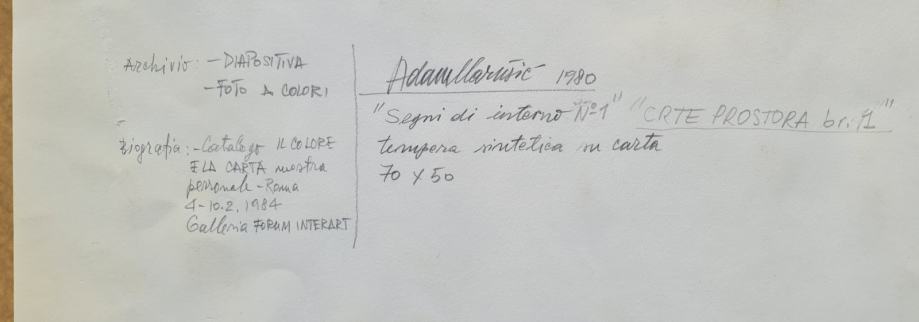 Archivio: - DIAPOSITIVA
- FOTO A COLORI
Biografia: - Catalogo IL COLORE
E LA CARTA mostra
personale - Roma
4-10.2.1984
Galleria FORUM INTERART
Adam Marušić 1980
"Segni di interno No1" "CRTE PROSTORA br. 1"
tempera sintetica su carta
70 x 50